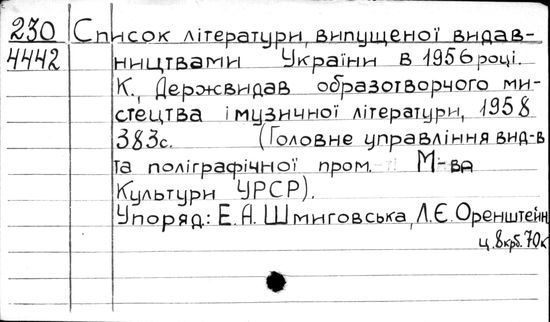 230 Список літератури, випущеної видав-
4442 ництвами України в 1956 році.
К., Держвидав образотворчого ми-
стецтва і музичної літератури, 1958
383с. (Головне управління вид-в
та поліграфічної пром. М-ва
Культури УРСР).
Упоряд: Е.А. Шмиговська, Л.Є. Оренштейн
ц. 8крб. 70к